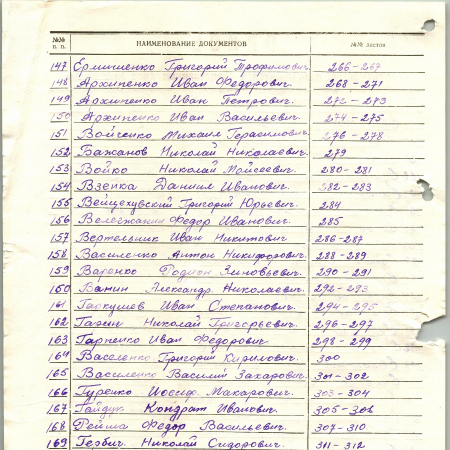 №№ п. п. НАИМЕНОВАНИЕ ДОКУМЕНТОВ №№ листов
147 Ермишенко Григорий Трофимович 266-267
148 Архипенко Иван Федорович. 268-271
149 Архипенко Иван Петрович. 272-273
150 Архипенко Иван Васильевич. 274-275
151 Войченко Михаил Герасимович 276-278
152 Бажанов Николай Николаевич. 279
153 Бойко Николай Мойсеевич. 280-281
154 Взенка Даниил Иванович. 282-283
155 Вейцеховский Григорий Юрьевич. 284
156 Велегжанин Федор Иванович. 285
157 Вертельник Иван Никитович 286-287
158 Василенко Антон Никифорович. 288-289
159 Варенко Родион Зиновьевич. 290-291
160 Ванин Александр Николаевич. 292-293
161 Иван Степанович. 294-295
162 Гагин Николай Григорьевич. 296-297
163 Гарпенко Иван Федорович 298-299
164 Василенко Григорий Кирилович. 300
165 Василенко Василий Захарович. 301-302
166 Гуренко Иосиф Макарович. 303-304
167 Гайдук Кондрат Иванович. 305-306
168 Федор Васильевич. 307-310
169 Гербич Николай Сидорович. 311-312